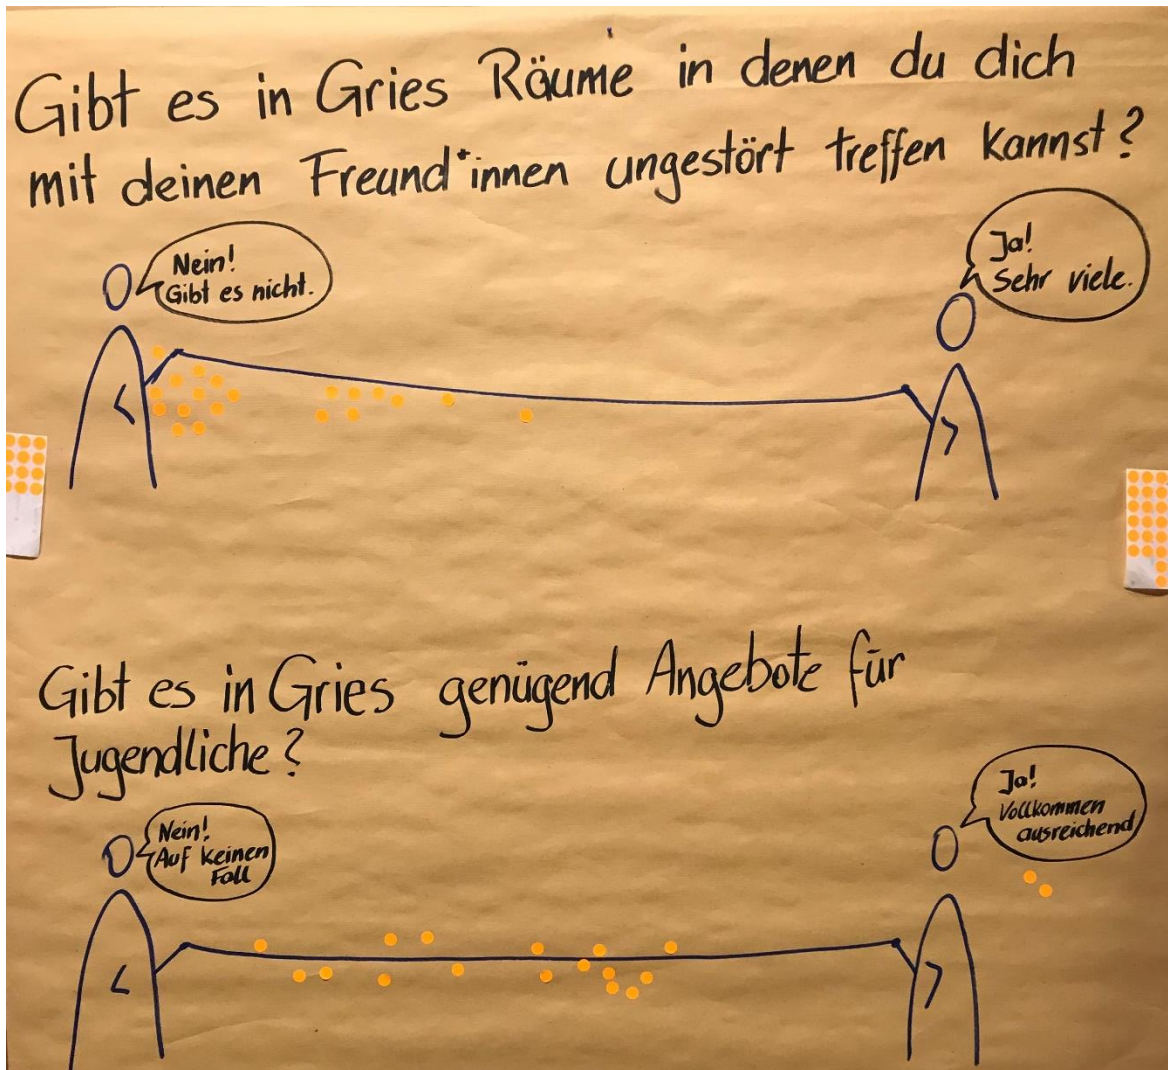 Gibt es in Gries Räume in denen du dich
mit deinen Freund*innen ungestört treffen kannst?
Nein!
Gibt es nicht.
Ja!
Sehr viele.
Gibt es in Gries genügend Angebote für
Jugendliche?
Nein!
Auf keinen
Fall
Ja!
Vollkommen
ausreichend